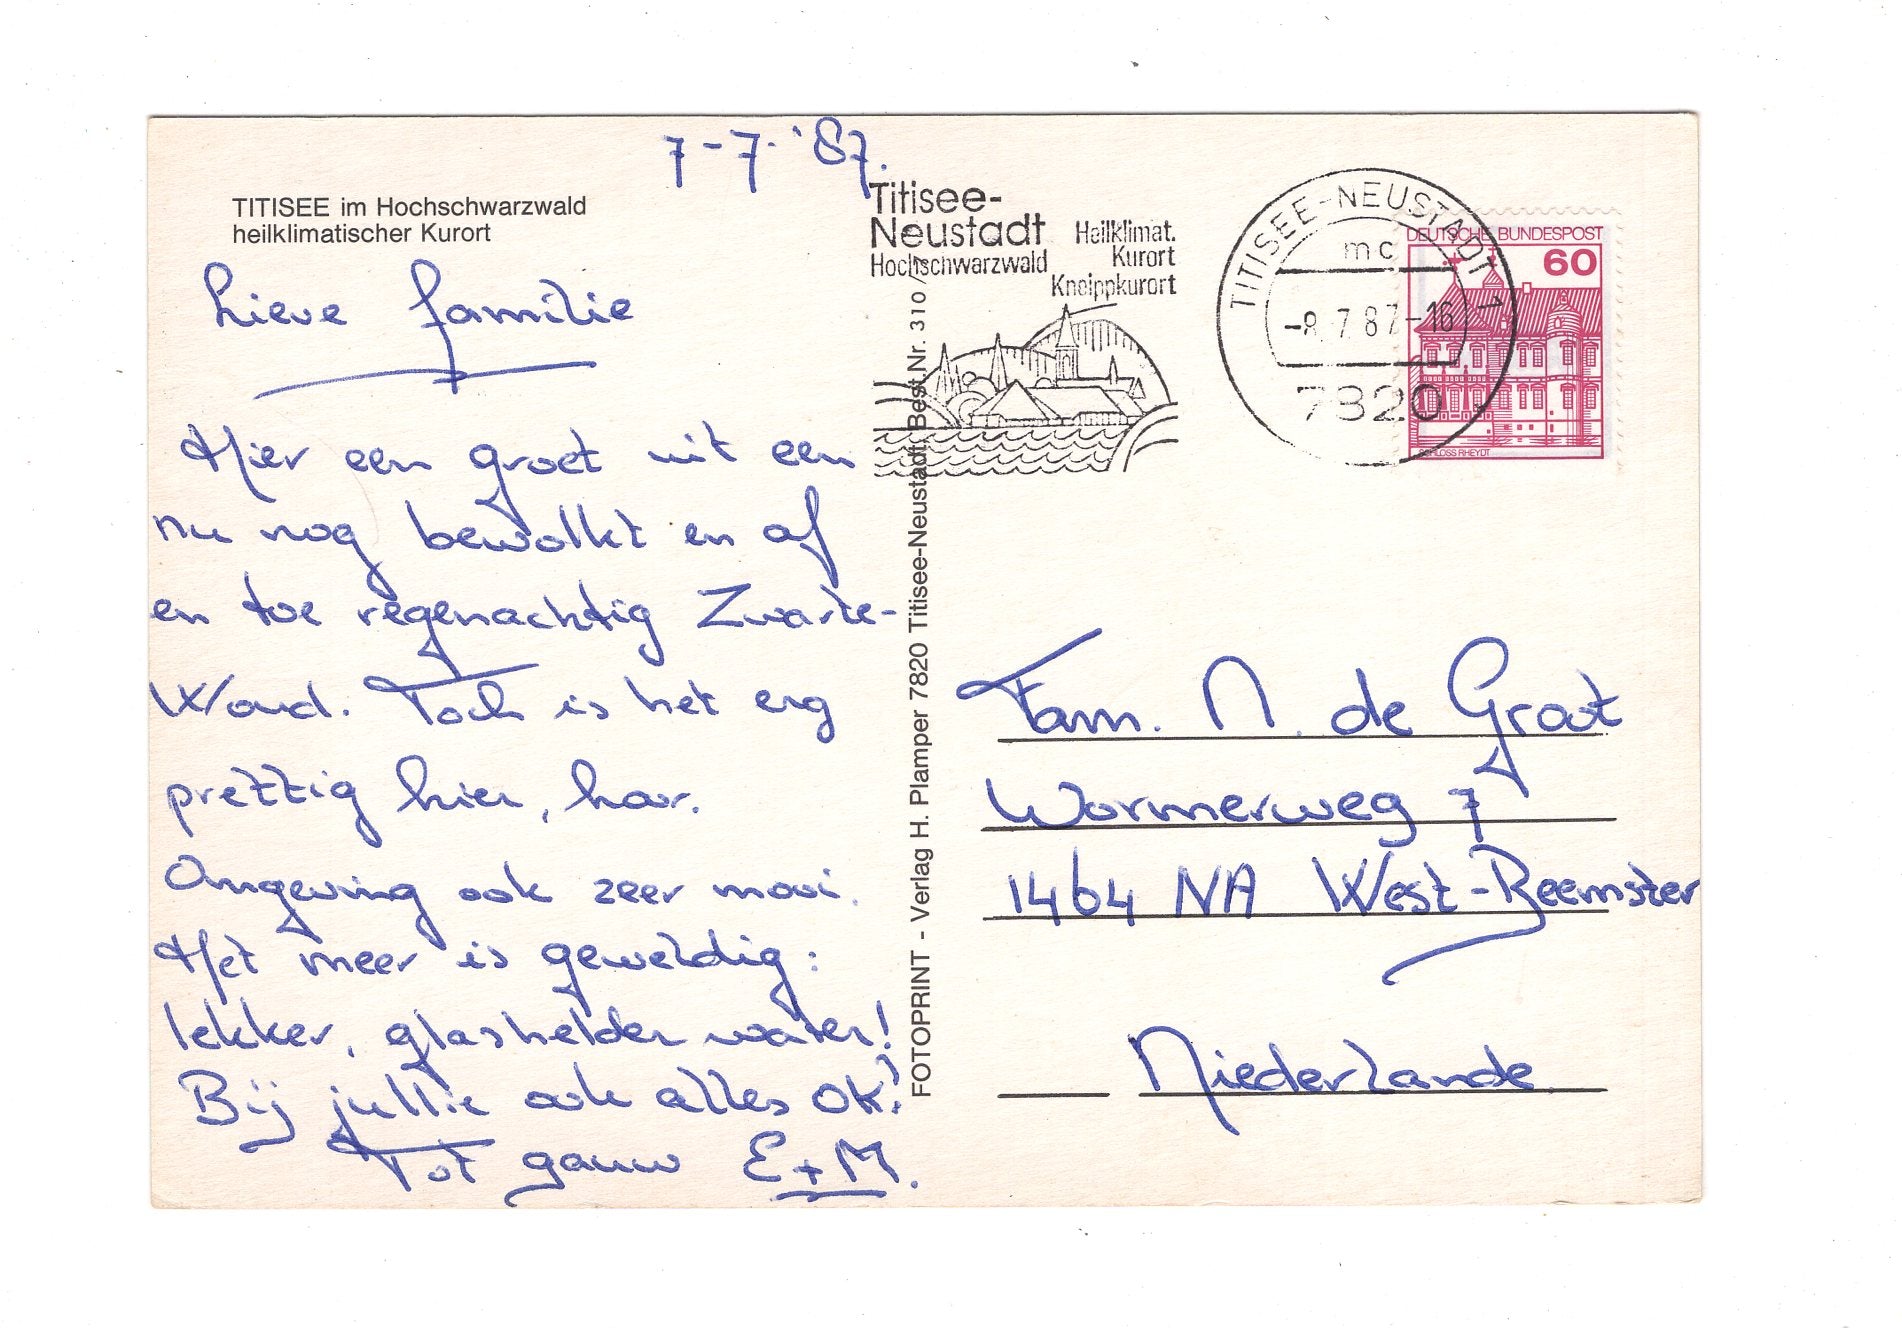 7-7-'87.
TITISEE im Hochschwarzwald
heilklimatischer Kurort
Lieve familie
Hier een groet uit een
nu nog bewolkt en af
en toe regenachtig Zwarte-
Woud. Toch is het erg
prettig hier, hoor.
Omgeving ook zeer mooi.
Het meer is geweldig:
lekker, glashelder water!
Bij jullie ook alles OK?
Tot gauw E+M.
FOTOPRINT - Verlag H. Plamper 7820 Titisee-Neustadt, Best.Nr. 310 /
Titisee-
Neustadt
Hochschwarzwald
Heilklimat.
Kurort
Kneippkurort
TITISEE-NEUSTADT 1
mc
-8.7.87-16
7820
DEUTSCHE BUNDESPOST
60
SCHLOSS RHEYDT
Fam. N. de Groot
Wormerweg 7
1464 NA West-Beemster
Niederlande